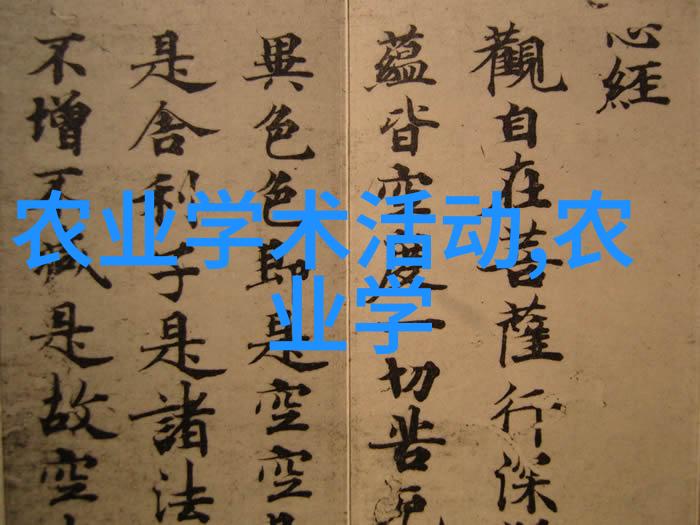 心經
觀自在菩薩行深
蘊皆空度一切苦厄
異色色即是空空
是舍利子是諸法
不增不減是故空
农业学术活动,农
业学